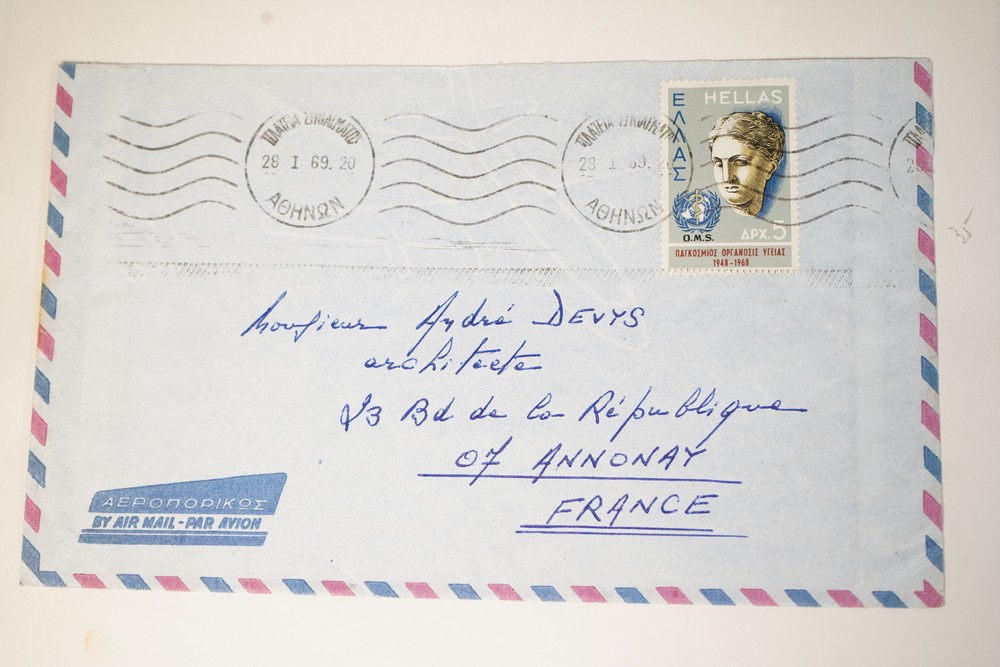 ΠΛΑΤΕΙΑ ΣΥΝΤΑΓΜΑΤΟΣ
28 I 69. 20
ΑΘΗΝΩΝ
ΠΛΑΤΕΙΑ ΣΥΝΤΑΓΜΑΤΟΣ
28 I 69. 2
ΑΘΗΝΩΝ
ΕΛΛΑΣ
HELLAS
O.M.S.
ΔΡΧ. 5
ΠΑΓΚΟΣΜΙΟΣ ΟΡΓΑΝΩΣΙΣ ΥΓΕΙΑΣ
1948-1968
35
Monsieur André DEVYS
architecte
23 Bd de la République
07 ANNONAY
FRANCE
ΑΕΡΟΠΟΡΙΚΩΣ
BY AIR MAIL - PAR AVION